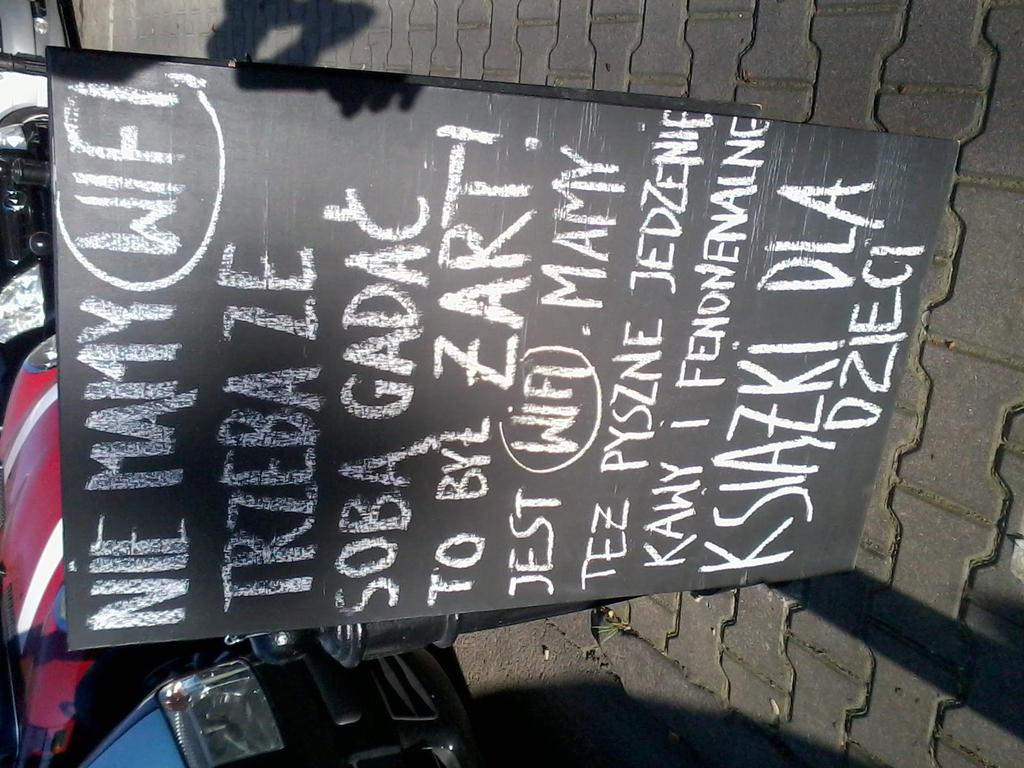 NIE MAMY WIFI,
TRZEBA ZE
SOBĄ GADAĆ
TO BYŁ ŻART!
JEST WIFI. MAMY
TEŻ PYSZNE JEDZENIE
KAWY I FENOMENALNE
KSIĄŻKI DLA
DZIECI